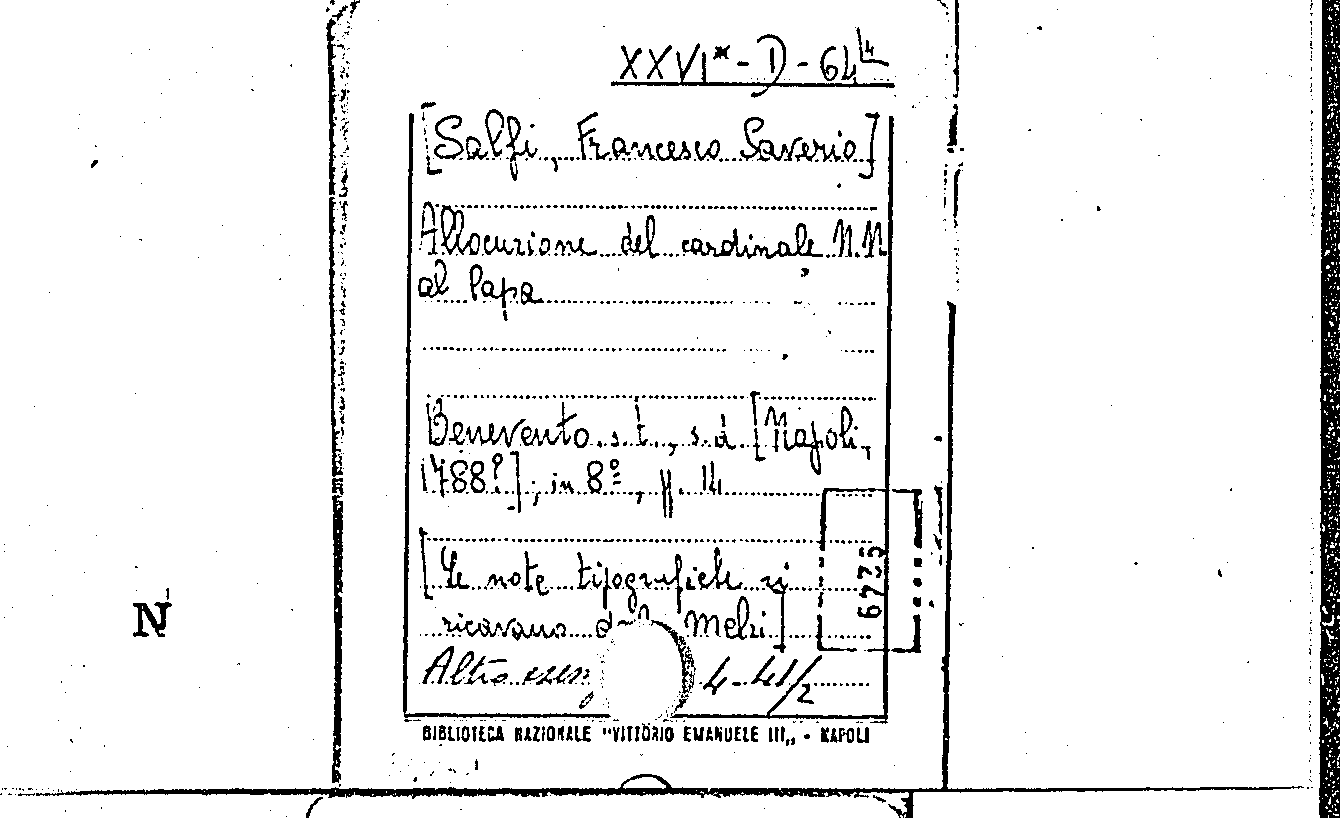 XXVI* - D - 64 4
[Salfi, Francesco Saverio]
Allocuzione del cardinale N.N.
al Papa
Benevento s.t., s.d. [Napoli,
1788?]; in 8º, pp. 14
[Le note tipografiche si
ricavano dal Melzi]
Altro esem 4-41/2
6225
N
BIBLIOTECA NAZIONALE "VITTORIO EMANUELE III„ - NAPOLI